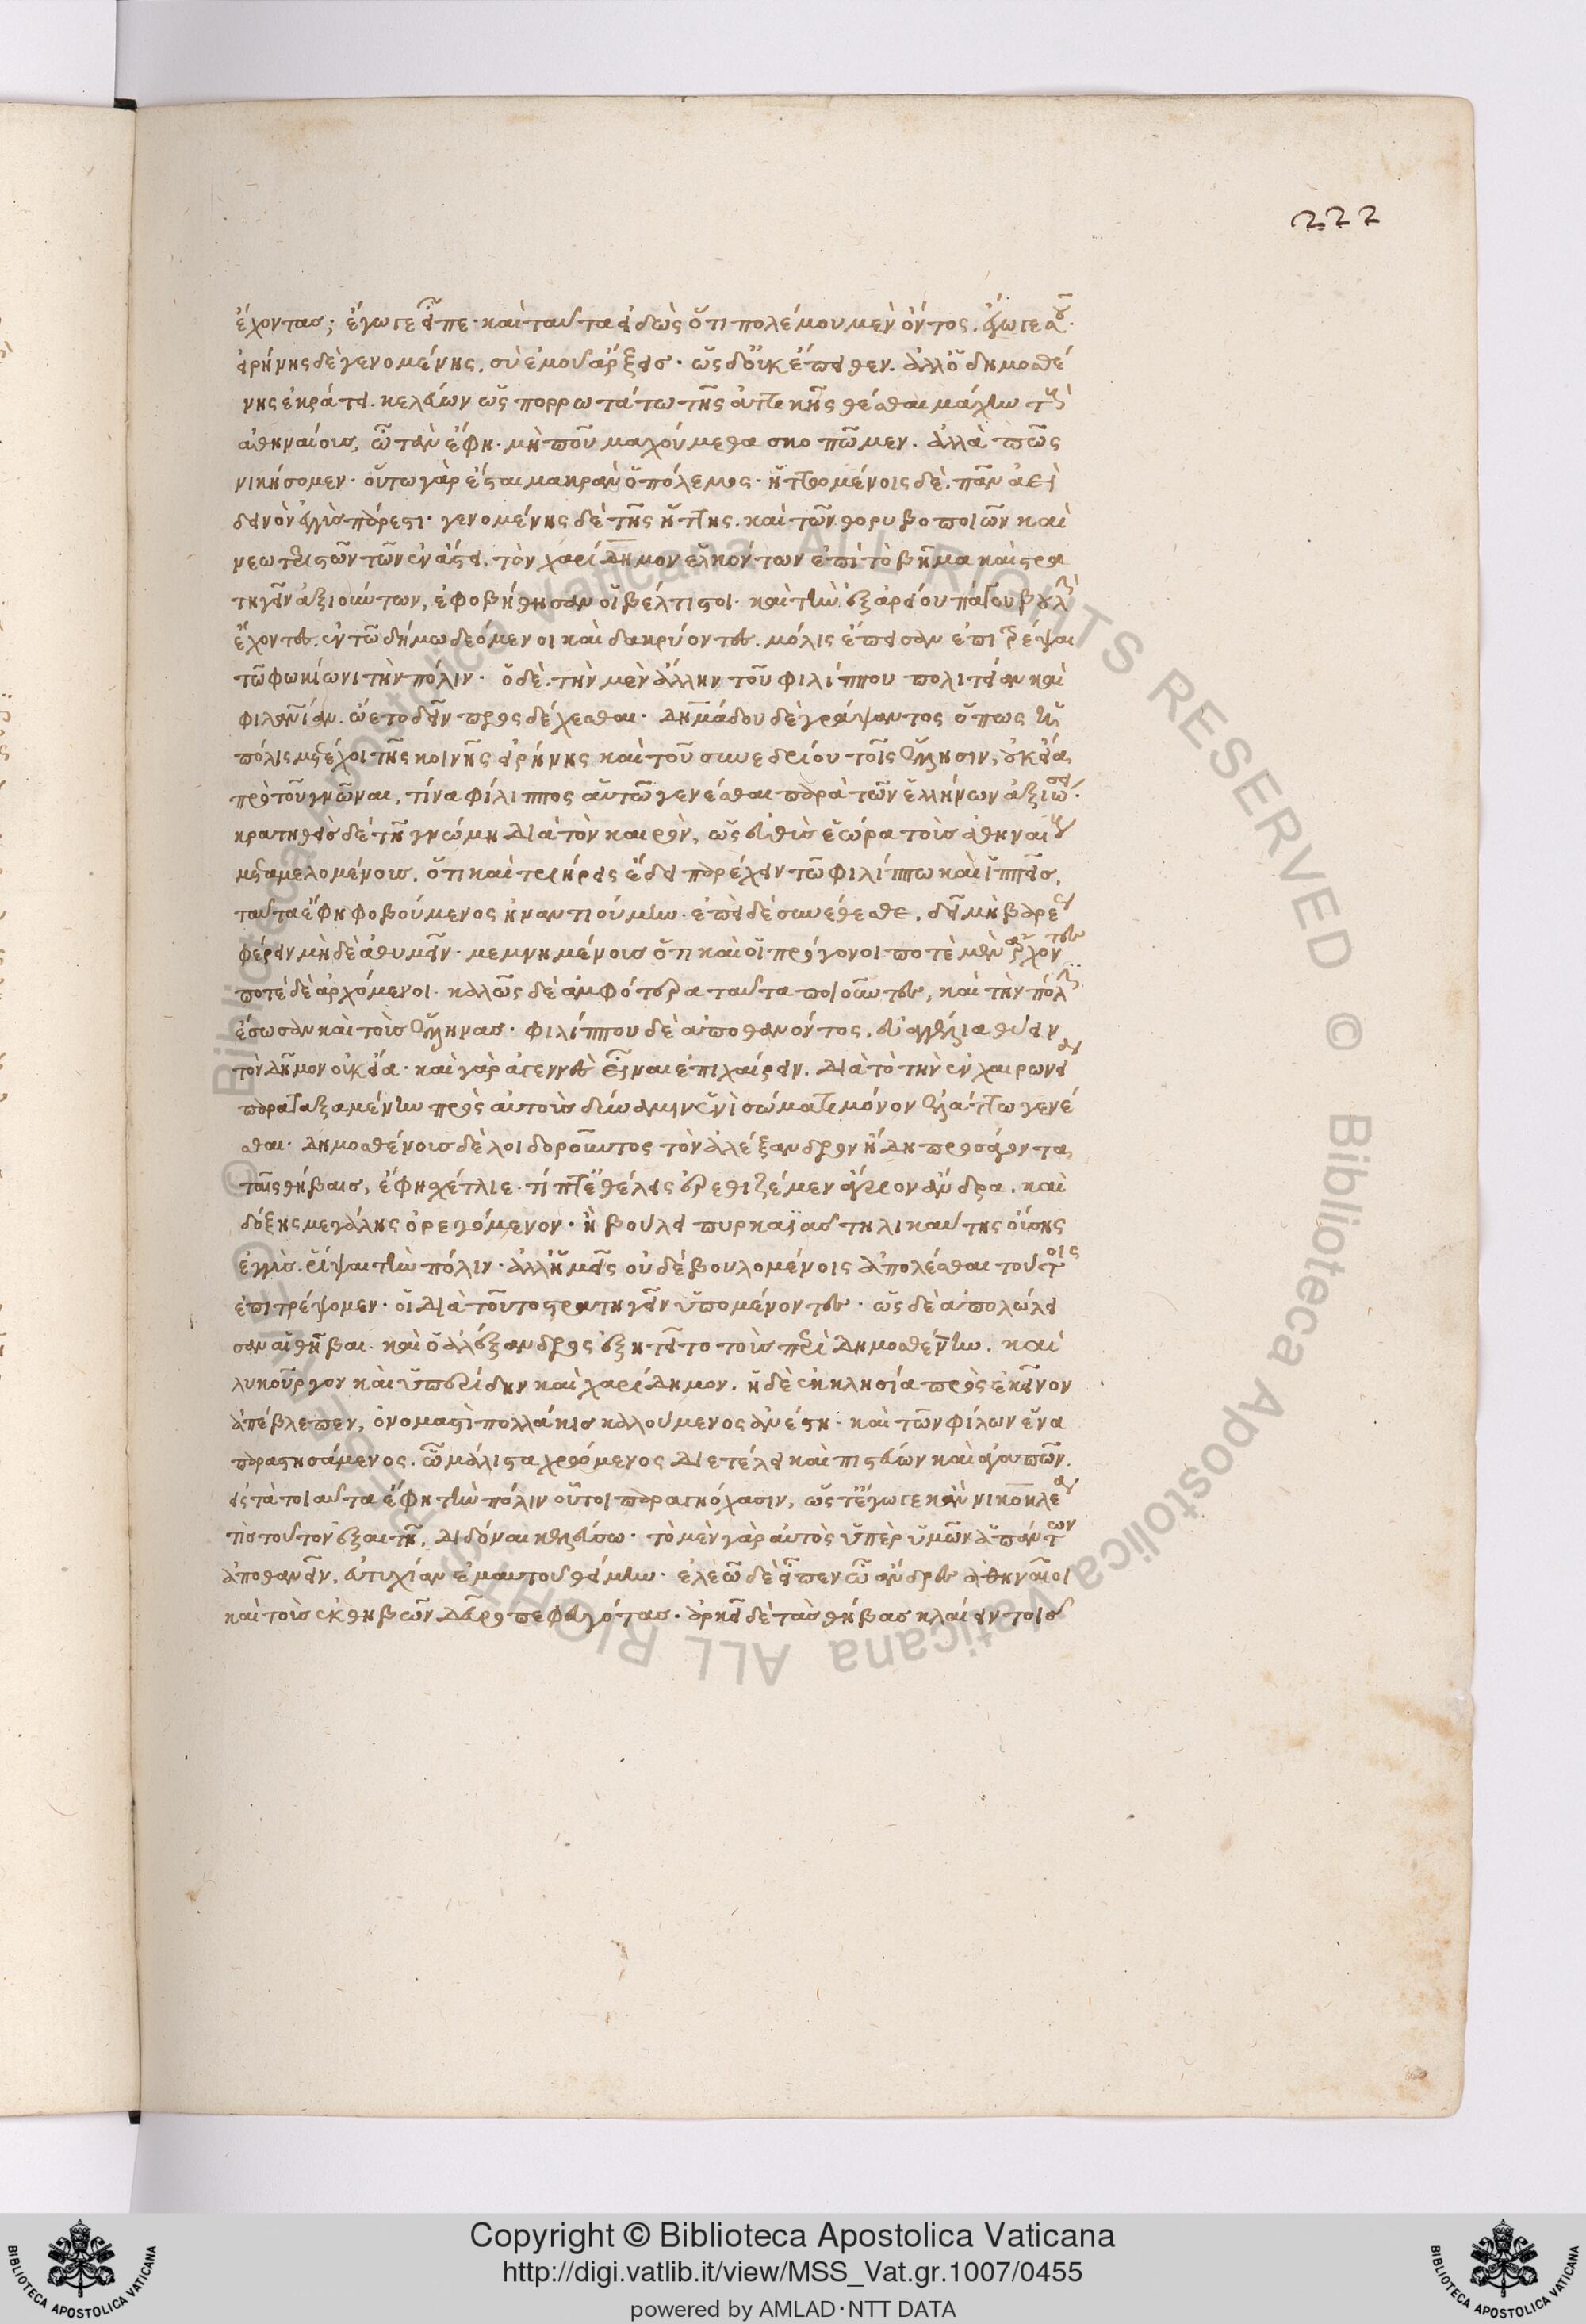 222
ἔχοντας; ἔγωγε εἶπε· καὶ ταῦτα εἰδὼς ὅτι πολέμου μὲν ὄντος, ἐγώ σε σοῦ·
εἰρήνης δὲ γενομένης, σὺ ἐμοῦ ἄρξεις· ὡς δ' οὐκ ἔπειθεν. ἀλλ' ὁ δημοσθέ
νης ἐκράτει. κελεύων ὡς πορρωτάτω τῆς ἀττικῆς θέσθαι μάχην τοὺς
ἀθηναίους, ὦ τᾶν ἔφη· μὴ ποῦ μαχούμεθα σκοπῶμεν. ἀλλὰ πῶς
νικήσομεν· οὕτω γὰρ ἔσται μακρὰν ὁ πόλεμος· ἡττωμένοις δὲ, πᾶν ἀεὶ
δεινὸν ἐγγὺς πάρεστι· γενομένης δὲ τῆς ἥττης. καὶ τῶν θορυβοποιῶν καὶ
νεωτεριστῶν τῶν ἐν ἄστει. τὸν χαρίδημον ἑλκόντων ἐπὶ τὸ βῆμα καὶ στρα
τηγεῖν ἀξιούντων, ἐφοβήθησαν οἱ βέλτιστοι· καὶ τὴν ἐξ ἀρείου πάγου βουλὴν
ἔχοντες. ἐν τῶ δήμω δεόμενοι καὶ δακρύοντες. μόλις ἔπεισαν ἐπιτρέψαι
τῶ φωκίωνι τὴν πόλιν· ὁ δὲ. τὴν μὲν ἄλλην τοῦ φιλίππου πολιτείαν καὶ
φιλανθρωπίαν. ὤετο δεῖν προσδέχεσθαι· δημάδου δὲ γράψαντος ὅπως ἡ
πόλις μετέχοι τῆς κοινῆς εἰρήνης καὶ τοῦ συνεδρίου τοῖς ἕλλησιν, οὐκ εἴα
πρὸ τοῦ γνῶναι, τίνα φίλιππος αὑτῶ γενέσθαι παρὰ τῶν ἑλλήνων ἀξιώσει·
κρατηθεὶς δὲ τῆ γνώμη διὰ τὸν καιρὸν, ὡς εὐθὺς ἑώρα τοὺς ἀθηναίους
μεταμελομένους, ὅτι καὶ τριήρεις ἔδει παρέχειν τῶ φιλίππω καὶ ἱππεῖς,
ταῦτα ἔφη φοβούμενος ἠναντιούμην· ἐπεὶ δὲ συνέθεσθε, δεῖ μὴ βαρέως
φέρειν μὴ δὲ ἀθυμεῖν· μεμνημένους ὅτι καὶ οἱ πρόγονοι ποτὲ μὲν ἄρχοντες
ποτὲ δὲ ἀρχόμενοι· καλῶς δὲ ἀμφότερα ταῦτα ποιοῦντες, καὶ τὴν πόλιν
ἔσωσαν καὶ τοὺς ἕλληνας· φιλίππου δὲ ἀποθανόντος, εὐαγγέλια θύειν
τὸν δῆμον οὐκ εἴα· καὶ γὰρ ἀγεννὲς εἶναι ἐπιχαίρειν. διὰ τὸ τὴν ἐν χαιρωνεία
παραταξαμένην πρὸς αὐτοὺς δύναμιν ἑνὶ σώματι μόνον ἐλάττω γενέ
σθαι· δημοσθένους δὲ λοιδοροῦντος τὸν ἀλέξανδρον ἤδη προσάγοντα
ταῖς θήβαις, ἔφη σχέτλιε· τί πτ' ἐθέλεις ἐρεθιζέμεν ἄγριον ἄνδρα. καὶ
δόξης μεγάλης ὀρεγόμενον· ἢ βούλει πυρκαϊᾶς τηλικαύτης οὔσης
ἐγγὺς. ῥίψαι τὴν πόλιν· ἀλλ' ἡμεῖς οὐδὲ βουλομένοις ἀπολέσθαι τούτοις
ἐπιτρέψομεν· οἱ διὰ τοῦτο στρατηγεῖν ὑπομένοντες· ὡς δὲ ἀπολώλει
σαν αἱ θῆβαι. καὶ ὁ ἀλέξανδρος ἐξητεῖτο τοὺς περὶ δημοσθένην. καὶ
λυκοῦργον καὶ ὑπερίδην καὶ χαρίδημον. ἡ δὲ ἐκκλησία πρὸς ἐκεῖνον
ἀπέβλεπεν, ὀνομαστὶ πολλάκις καλούμενος ἀνέστη· καὶ τῶν φίλων ἕνα
παραστησάμενος. ὧ μάλιστα χρώμενος διετέλει καὶ πιστεύων καὶ ἀγαπῶν.
εἰς τὰ τοιαῦτα ἔφη τὴν πόλιν οὗτοι παραγηόχασιν, ὥστ' ἔγωγε κἂν νικοκλέα
τὶς τοῦτον ἐξαιτῆ, διδόναι κελεύσω· τὸ μὲν γὰρ αὐτὸς ὑπὲρ ὑμῶν ἁπάντων
ἀποθανεῖν, εὐτυχίαν ἐμαυτοῦ θείμην· ἐλεῶ δὲ εἶπεν ὦ ἄνδρες ἀθηναῖοι
καὶ τοὺς ἐκ θηβῶν δεῦρο πεφευγότας· ἀρκεῖ δὲ τὰς θήβας κλαίειν τοῖς
© Biblioteca Apostolica Vaticana ALL RIGHTS RESERVED © Biblioteca Apostolica Vaticana ALL RIGHTS RESERVED
Copyright © Biblioteca Apostolica Vaticana
http://digi.vatlib.it/view/MSS_Vat.gr.1007/0455
powered by AMLAD·NTT DATA
BIBLIOTECA APOSTOLICA VATICANA
BIBLIOTECA APOSTOLICA VATICANA